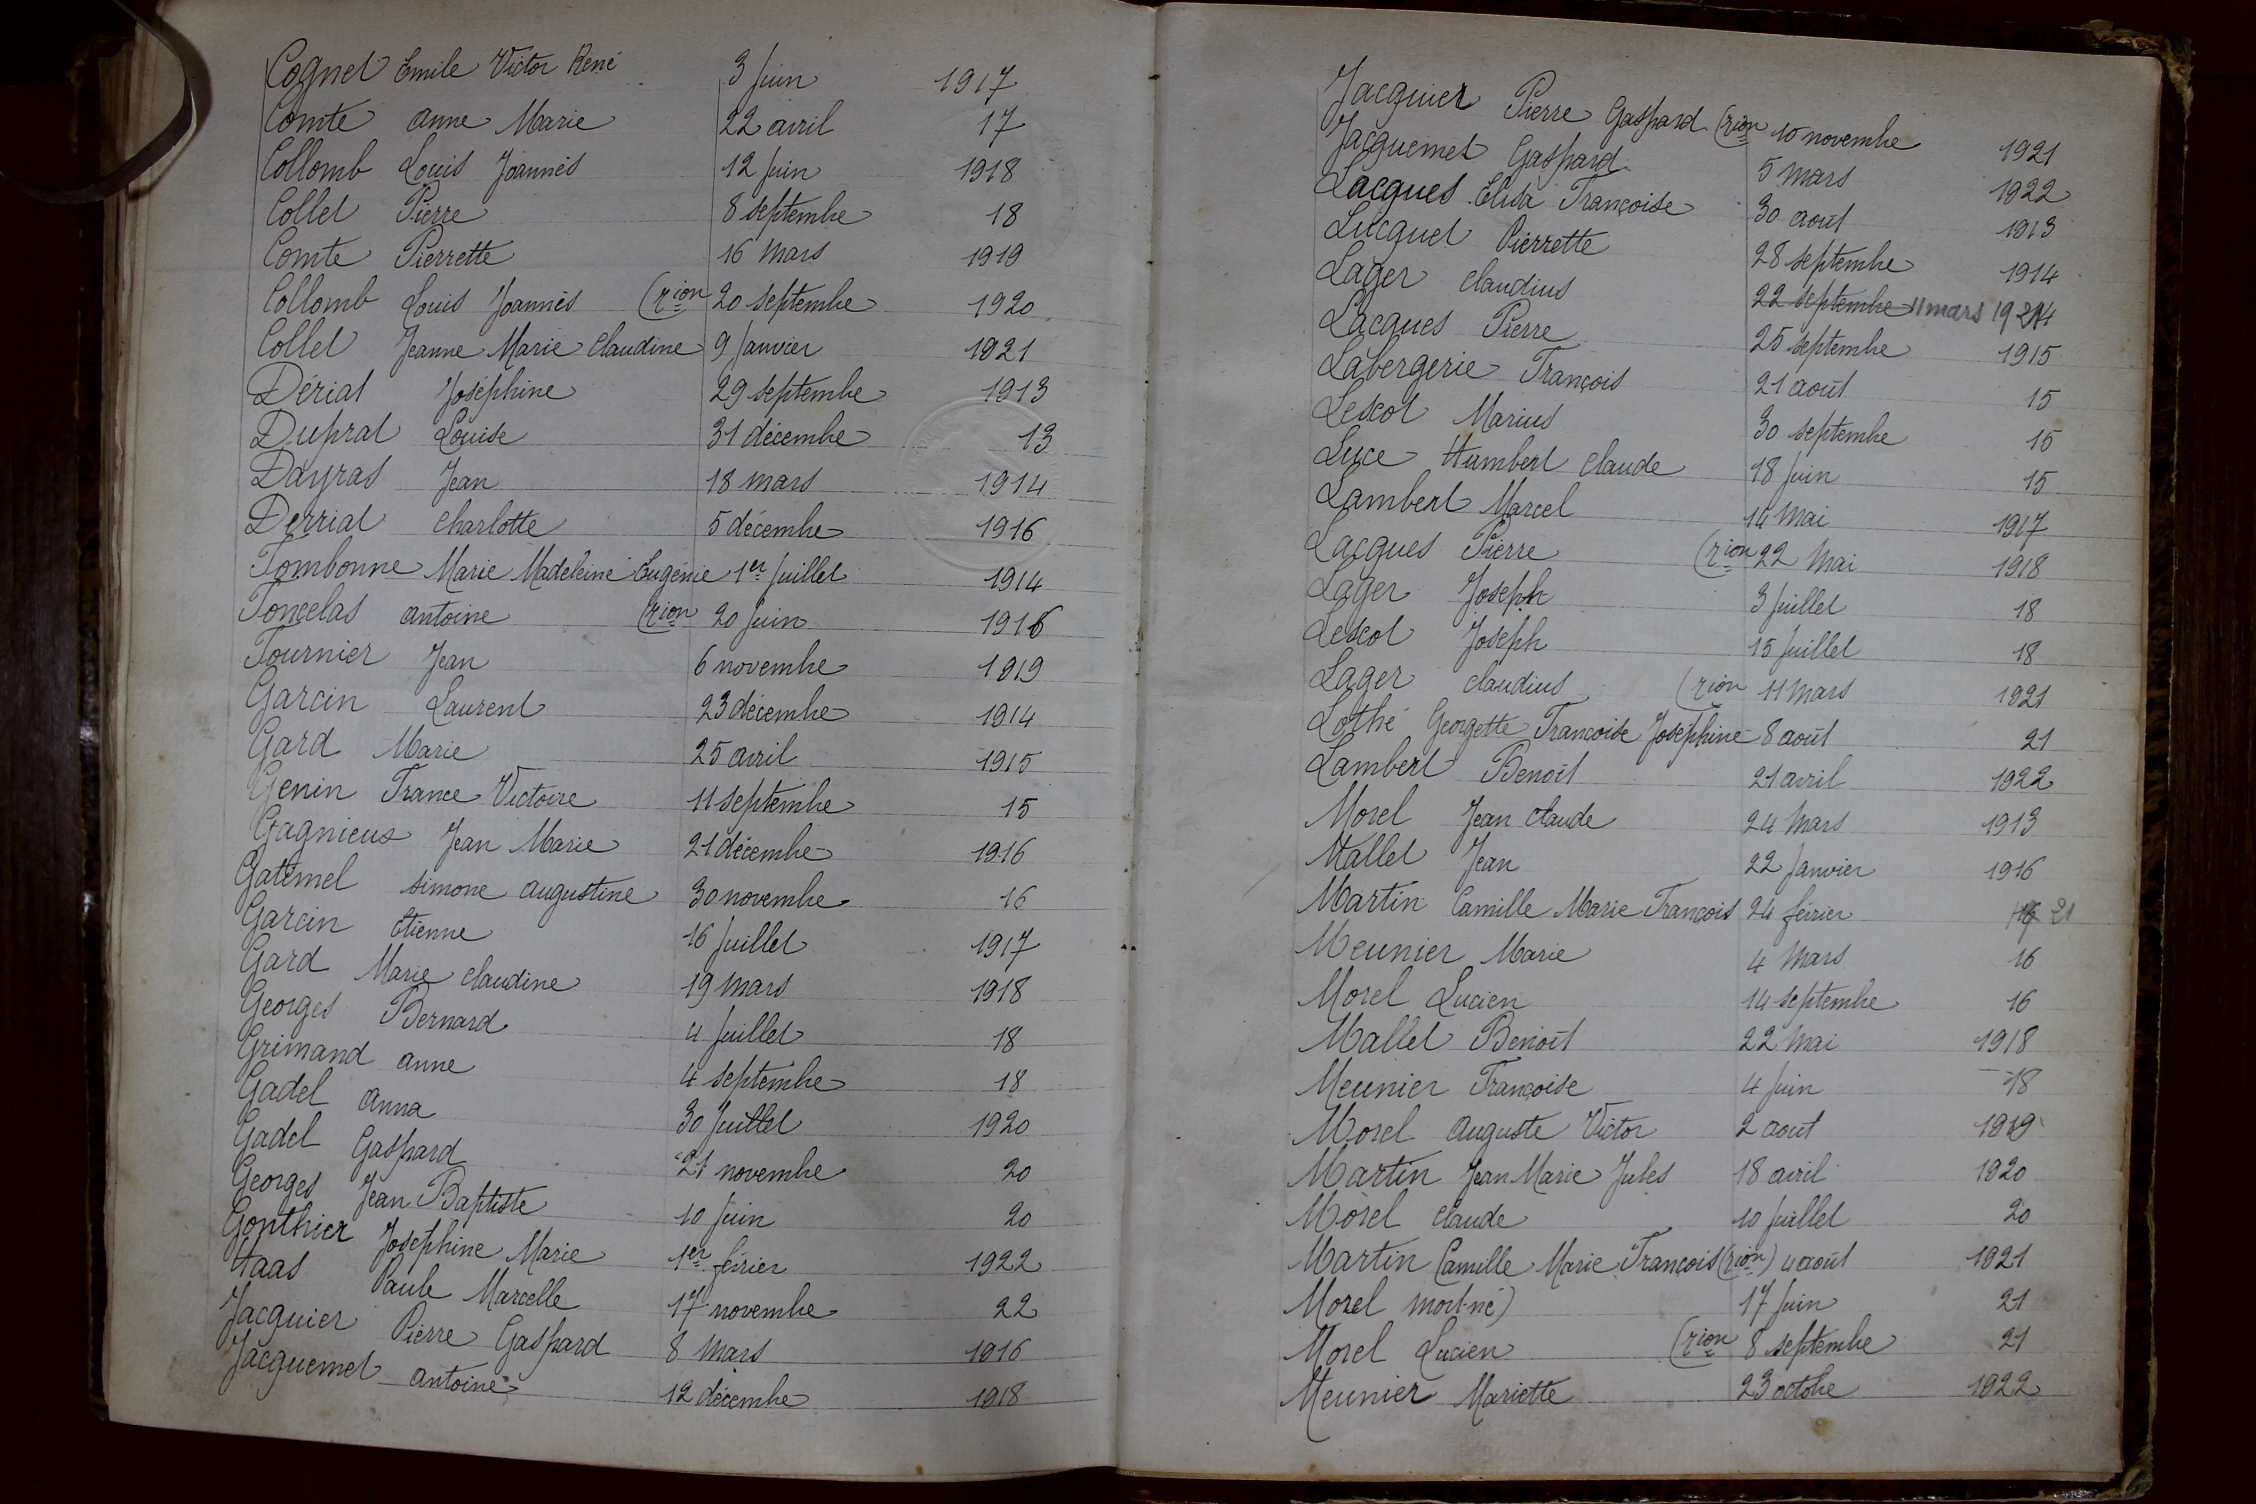 Cognet Emile Victor René 3 Juin 1917
Comte Anne Marie 22 avril 17
Collomb Louis Joannès 12 Juin 1918
Collet Pierre 8 septembre 18
Comte Pierrette 16 Mars 1919
Collomb Louis Joannès (rion 20 septembre 1920
Collet Jeanne Marie Claudine 9 Janvier 1921
Dériat Joséphine 29 septembre 1913
Duprat Louise 31 décembre 13
Dayras Jean 18 mars 1914
Derriat Charlotte 5 décembre 1916
Fombonne Marie Madeleine Eugénie 1er Juillet 1914
Foncelas Antoine (rion 20 Juin 1916
Fournier Jean 6 novembre 1919
Garcin Laurent 23 décembre 1914
Gard Marie 25 avril 1915
Genin France Victoire 11 septembre 15
Gagnieux Jean Marie 21 décembre 1916
Gatemel Simone Augustine 30 novembre 16
Garcin Etienne 16 Juillet 1917
Gard Marie Claudine 19 Mars 1918
Georges Bernard 4 Juillet 18
Grimand Anne 4 septembre 18
Gadel Anna 30 Juillet 1920
Gadel Gaspard 21 novembre 20
Georges Jean Baptiste 10 Juin 20
Gonthier Joséphine Marie 1er février 1922
Haas Paule Marcelle 17 novembre 22
Jacquier Pierre Gaspard 8 Mars 1916
Jacquemet Antoine 12 décembre 1918
Jacquier Pierre Gaspard (rion 10 novembre 1921
Jacquemet Gaspard 5 Mars 1922
Lacques Elisa Françoise 30 août 1913
Lucquet Pierrette 28 septembre 1914
Lager Claudius 22 septembre 11 mars 19
Lacques Pierre 25 septembre 1915
Labergerie François 21 août 15
Lescot Marius 30 septembre 15
Luce Humbert Claude 18 Juin 15
Lambert Marcel 14 Mai 1917
Lacques Pierre (rion 22 Mai 1918
Lager Joseph 3 Juillet 18
Lescot Joseph 15 Juillet 18
Lager Claudius (rion 11 Mars 1921
Lothé Georgette Françoise Joséphine 8 août 21
Lambert Benoît 21 avril 1922
Morel Jean Claude 24 Mars 1913
Mallet Jean 22 Janvier 1916
Martin Camille Marie François 24 février 21
Meunier Marie 4 Mars 16
Morel Lucien 14 septembre 16
Mallet Benoît 22 Mai 1918
Meunier Françoise 4 Juin 18
Morel Auguste Victor 2 août 1919
Martin Jean Marie Jules 18 avril 1920
Morel Claude 10 Juillet 20
Martin Camille Marie François (rion) 4 août 1921
Morel mort-né) 17 Juin 21
Morel Lucien (rion 8 septembre 21
Meunier Mariette 23 octobre 1922